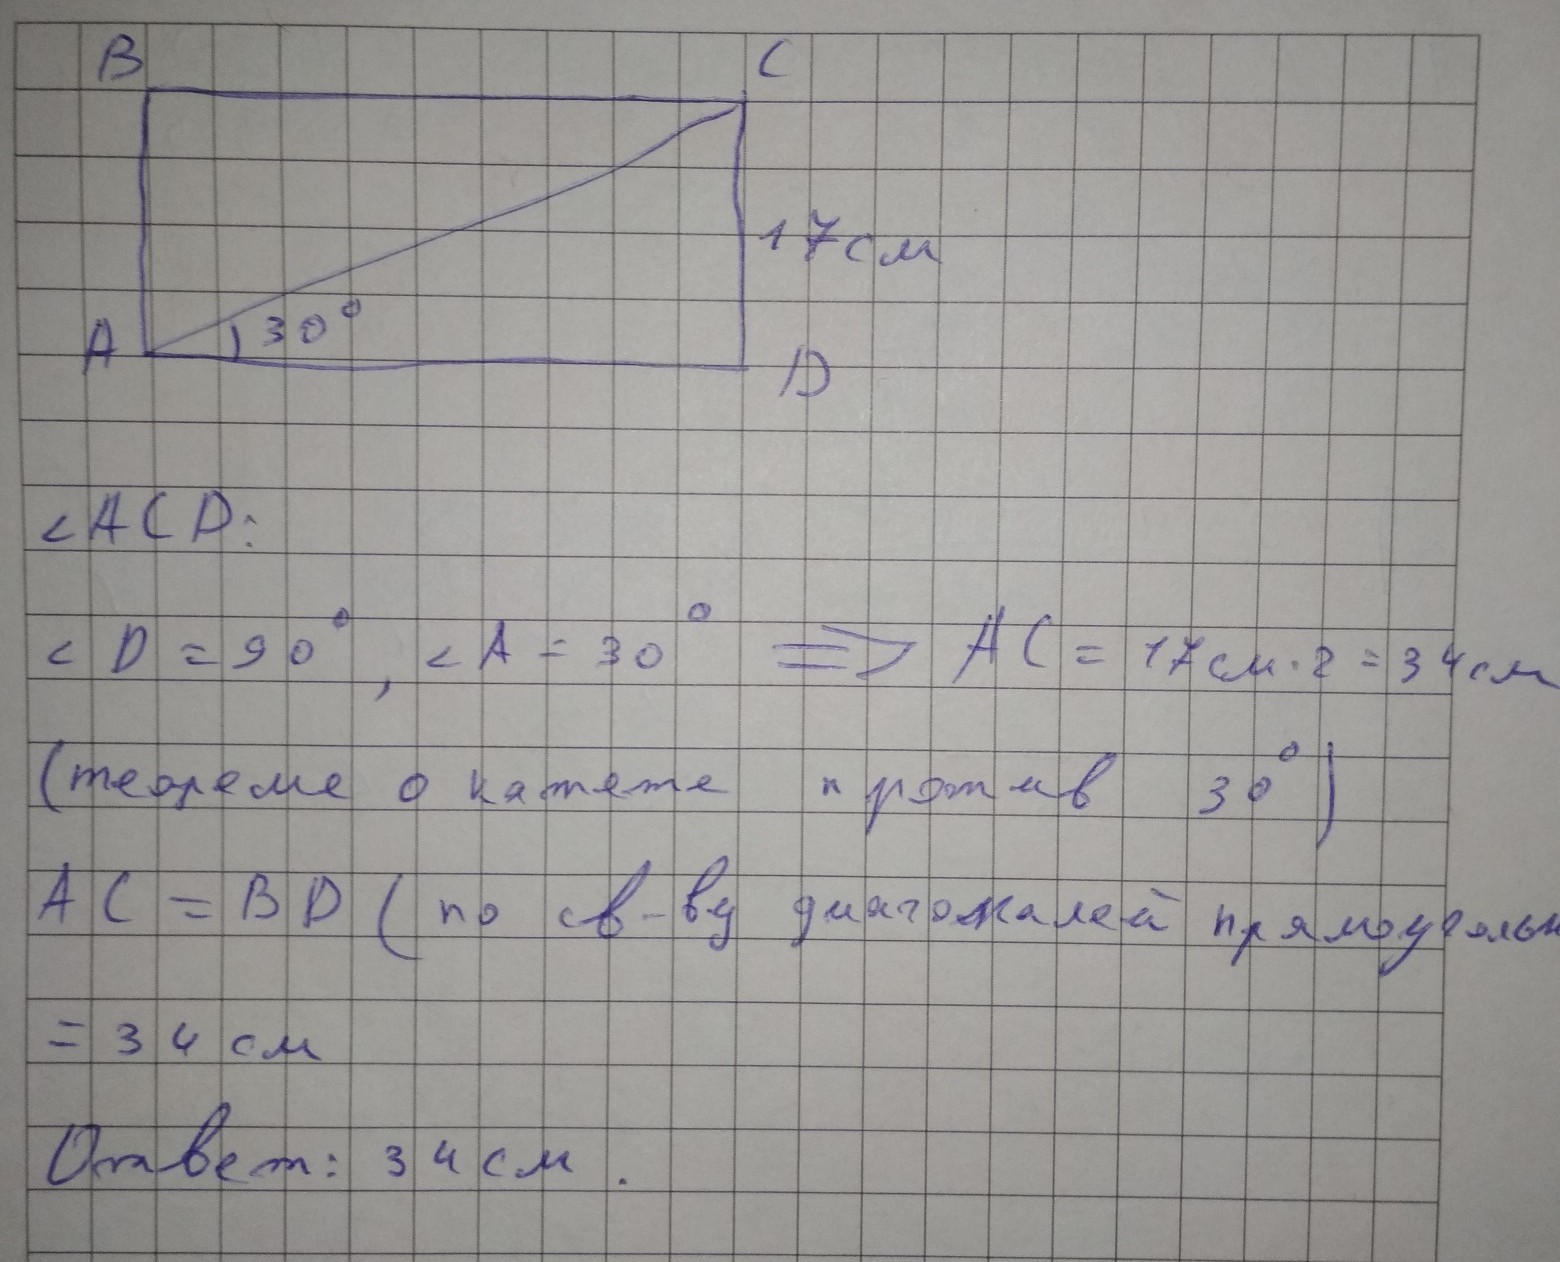 B C
17см
A 30°
D
<ACD:
< D = 90°, < A = 30° => AC = 17см·2 = 34см
(теореме о катете против 30°)
AC = BD ( по св-ву диагоналей прямоугольн
= 34 см
Ответ: 34 см.